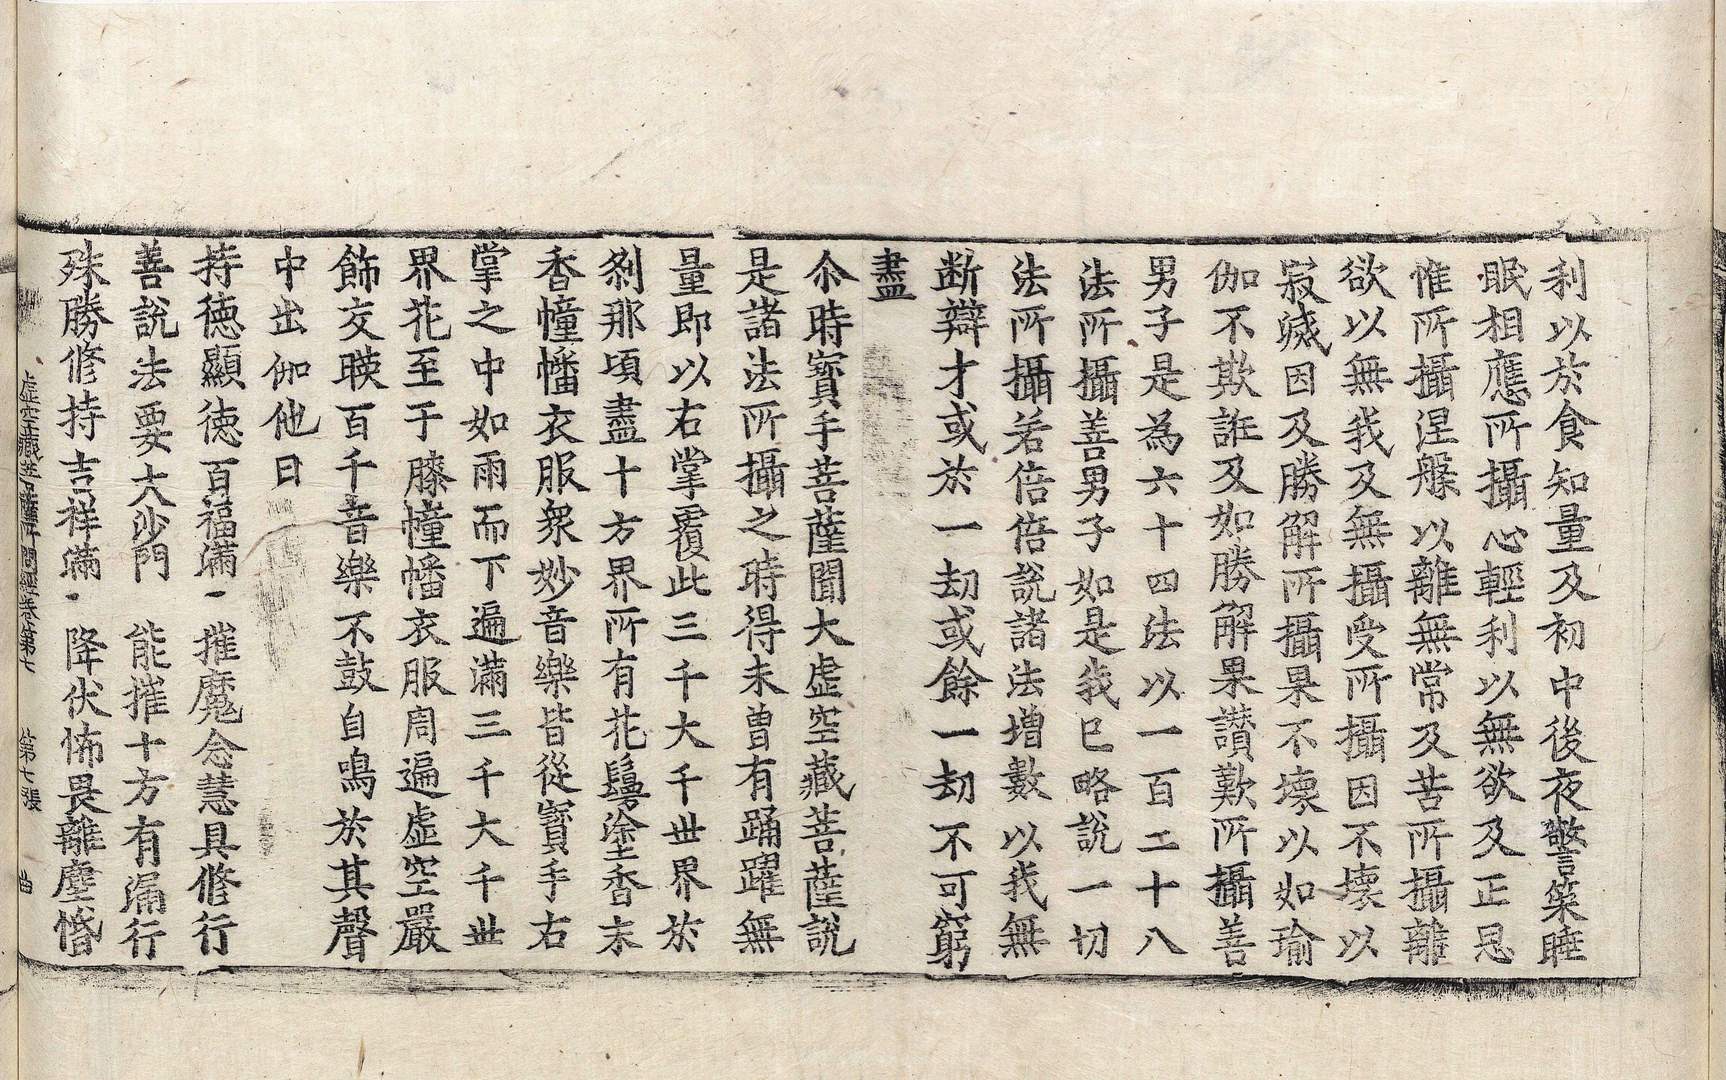 利以於食知量及初中後夜警策睡
眠相應所攝心輕利以無欲及正思
惟所攝涅槃以離無常及苦所攝離
欲以無我及無攝受所攝因不壞以
寂滅因及勝解所攝果不壞以如瑜
伽不欺誑及如勝解果讚歎所攝善
男子是為六十四法以一百二十八
法所攝善男子如是我已略說一切
法所攝若倍倍說諸法增數以我無
断辯才或於一劫或餘一劫不可窮
盡
尒時寶手菩薩聞大虛空藏菩薩說
是諸法所攝之時得未曾有踊躍無
量即以右掌覆此三千大千世界於
刹那頃盡十方界所有花鬘塗香末
香幢幡衣服衆妙音樂皆從寶手右
掌之中如雨而下遍滿三千大千世
界花至于膝幢幡衣服周遍虛空嚴
飾交暎百千音樂不鼓自鳴於其聲
中出伽他曰
持徳顯徳百福滿 摧魔念慧具修行
善說法要大沙門 能摧十方有漏行
殊勝修持吉祥滿 降伏怖畏離塵惛
虛空藏菩薩所問經卷第七 第七張 曲